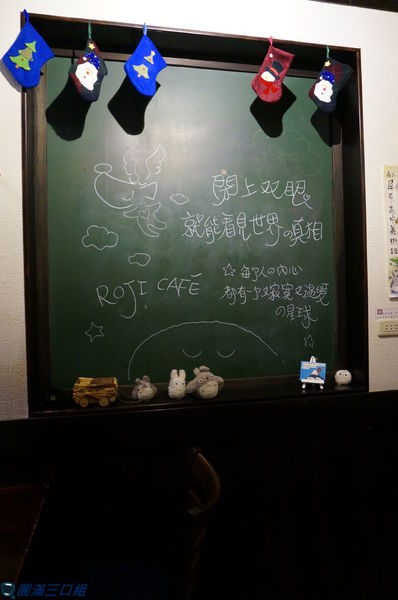 閉上双眼
就能看見世界の真相
ROJI CAFÉ
☆每个人の內心
都有一个又寂寞又溫暖
の星球
圓滿三口組